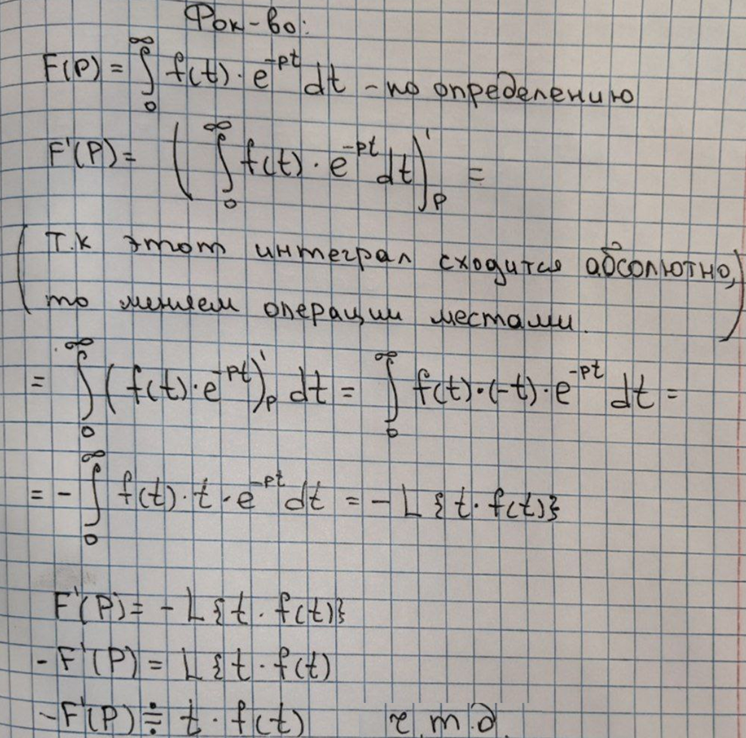 Док-во:
F(P) = ∫₀^∞ f(t) · e^{-pt} dt - по определению
F'(P) = ( ∫₀^∞ f(t) · e^{-pt} dt )'_p =
( т.к этот интеграл сходится абсолютно,
то меняем операции местами. )
= ∫₀^∞ ( f(t) · e^{-pt} )'_p dt = ∫₀^∞ f(t) · (-t) · e^{-pt} dt =
= - ∫₀^∞ f(t) · t · e^{-pt} dt = - L {t · f(t)}
F'(P) = - L {t · f(t)}
-F'(P) = L {t · f(t)
-F'(P) ≓ t · f(t) ч т д.